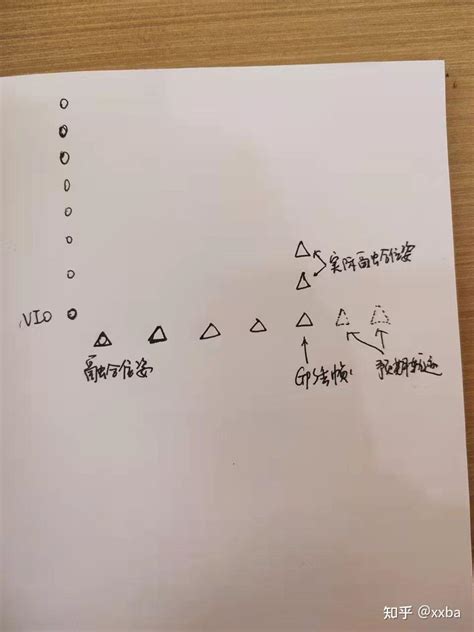 实际融合位姿
VIO
融合位姿
GPS帧
预期轨迹
知乎 @xxba